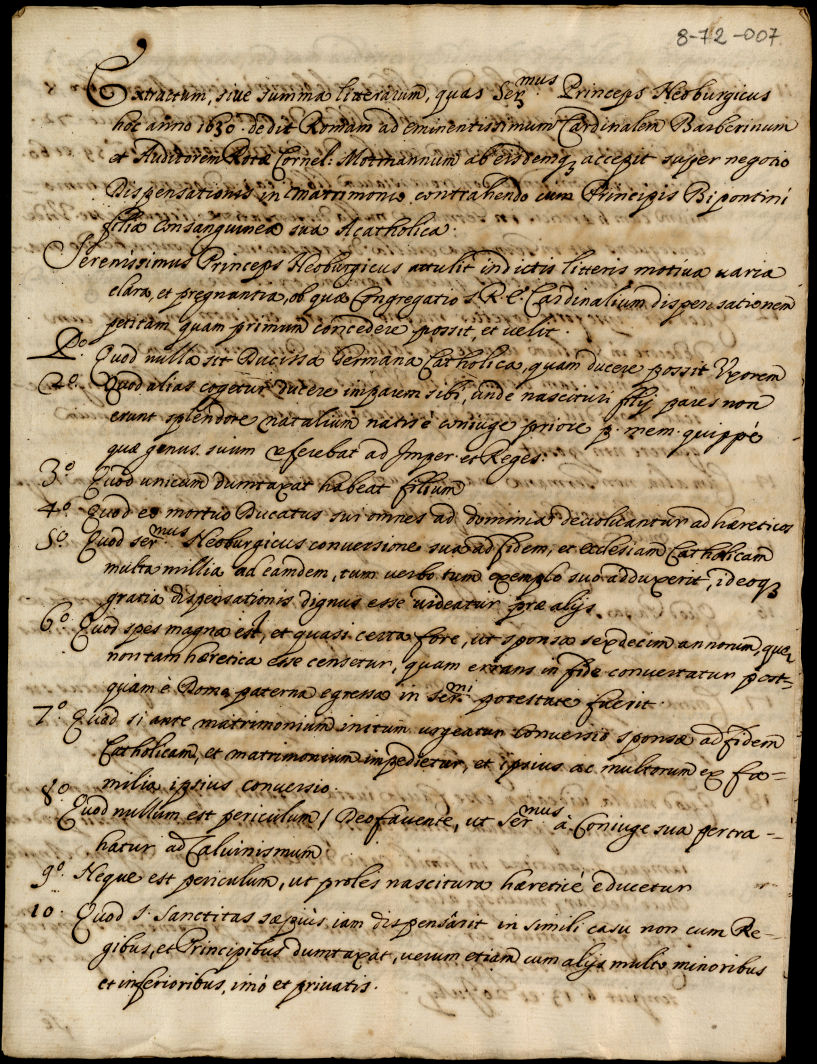 8-72-007
Extractum, sive summa litterarum, quas Ser.mus Princeps Neoburgicus
hoc anno 1630. dedit Romam ad eminentissimum Cardinalem Barberinum
et Auditorem Rotæ Cornel: Motmannum ab eisdemq3 accepit super negotio
Dispensationis in matrimonio contrahendo cum Principis Bipontini
filia consanguinea sua Acatholica.
Serenissimus Princeps Neoburgicus attulit in dictis litteris motiva varia
clara, et pregnantia, ob quæ Congregatio S. R. E. Cardinalium dispensationem
petitam quam primum concedere possit, et velit.
P.o Quod nulla sit Ducissa Germana Catholica, quam ducere possit Uxorem
2.o Quod alias cogetur ducere imparem sibi, unde nascituri filij pares non
erunt splendore natalium natis è coniuge priore p. mem. quippè
quæ genus suum referebat ad Imper. et Reges.
3.o Quod unicum dumtaxat habeat filium
4.o Quod eo mortuo Ducatus sui omnes ad dominia devolvantur ad hæreticos
5.o Quod ser.mus Neoburgicus conversione sua ad fidem, et ecclesiam Catholicam
multa millia ad eamdem, tum verbo tum exemplo suo adduxerit, ideoq3
gratia dispensationis dignus esse videatur præ alijs.
6.o Quod spes magna est, et quasi certa fore, ut sponsa sexdecim annorum, quæ
non tam hæretica esse censetur, quam errans in fide convertatur post-
quam è Domo paterna egressa in ser.mi potestate fuerit.
7.o Quod si ante matrimonium initum urgeatur conversio sponsæ ad fidem
Catholicam, et matrimonium impedietur, et ipsius ac multorum ex fa=
milia ipsius conversio.
8.o Quod nullum est periculum / Deo favente, ut Ser.mus à Coniuge sua pertra=
hatur ad Calvinismum
9.o Neque est periculum, ut proles nascitura hæreticè educetur
10. Quod S. Sanctitas sæpiùs iam dispensârit in simili casu non cum Re=
gibus, et Principibus dumtaxat, verum etiam cum alijs multo minoribus
et inferioribus, imò et privatis.